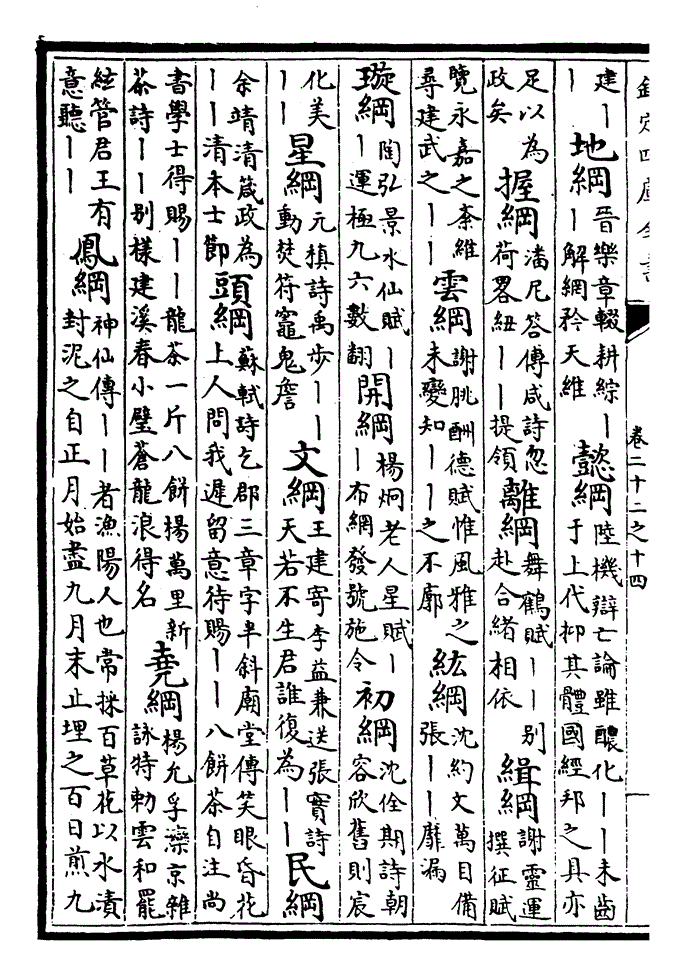 欽定四庫全書 卷二十二之十四
建丨丨地綱晉樂章輟耕綜丨丨解網矜天維懿綱陸機辯亡論雖醲化丨丨未齒于上代抑其體國經邦之具亦
足以為政矣握綱潘尼答傅咸詩忽荷畧紐丨丨提領離綱舞鶴賦丨丨别赴合緒相依緝綱謝靈運撰征賦
覽永嘉之紊維尋建武之丨丨雲綱謝朓酬德賦惟風雅之未變知丨丨之不廓紘綱沈約文萬目備張丨丨靡漏
璇綱陶弘景水仙賦丨丨運極九六數翻開綱楊炯老人星賦丨丨布網發號施令初綱沈佺期詩朝容欣舊則宸
化美丨丨星綱元稹詩禹步丨丨動焚符竈鬼詹文綱王建寄李益兼送張實詩天若不生君誰復為丨丨民綱
余靖清箴政為丨丨清本士節頭綱蘇軾詩乞郡三章字半斜廟堂傳笑眼昏花上人問我遲留意待賜丨丨八餅茶自注尚
書學士得賜丨丨龍茶一斤八餅楊萬里新茶詩丨丨别樣建溪春小璧蒼龍浪得名堯綱楊允孚灤京雜詠特勅雲和罷
絃管君王有意聽丨丨鳳綱神仙傳丨丨者漁陽人也常採百草花以水漬封泥之自正月始盡九月末止埋之百日煎九